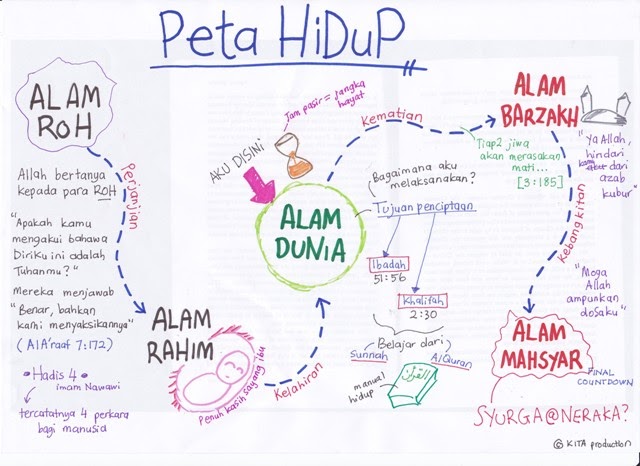 Peta HiDuP
ALAM
ROH
Allah bertanya
kepada para ROH
"Apakah kamu
mengakui bahawa
Diriku ini adalah
Tuhanmu?"
Mereka menjawab
"Benar, bahkan
kami menyaksikannya"
(Al A'raaf 7:172)
• Hadis 4 •
imam Nawawi
tercatatnya 4 perkara
bagi manusia
Perjanjian
ALAM
RAHIM
Penuh kasih sayang ibu
Kelahiran
AKU DISINI
Jam pasir = jangka
hayat
ALAM
DUNIA
Bagaimana aku
melaksanakan?
Tujuan penciptaan
Ibadah
51:56
Khalifah
2:30
Belajar dari
Sunnah
Al Quran
manual
hidup
القرآن
Kematian
Tiap2 jiwa
akan merasakan
mati...
[3:185]
ALAM
BARZAKH
"Ya Allah,
hindari
kami dari
azab
kubur"
Kebangkitan
"Moga
Allah
ampunkan
dosaku"
ALAM
MAHSYAR
FINAL
COUNTDOWN
SYURGA@NERAKA?
© KITA production